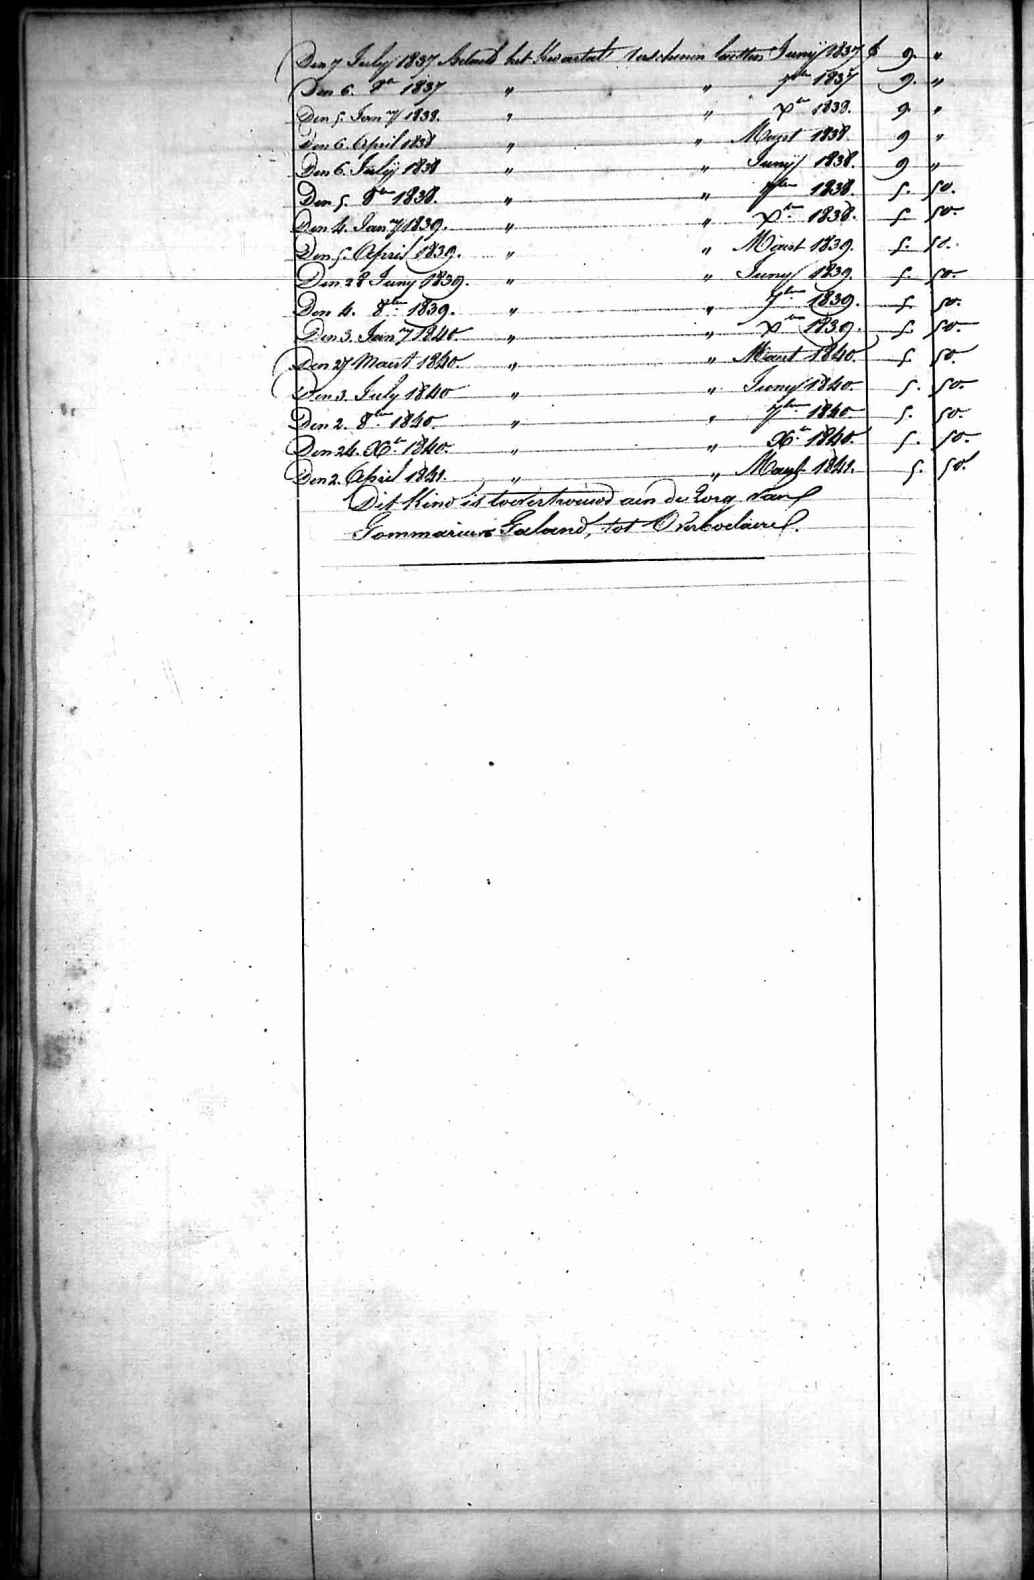 Den 7 July 1837 Betaeld het Kwartal verschenen lasten Juny 1837 f 9. "
Den 6. 8re 1837 " " 7bre 1837 9. "
Den 5. Jany 1838. " " Xre 1838. 9. "
Den 6. April 1838 " " Maert 1838 9 "
Den 6. July 1838 " " Juny 1838. 9 "
Den 5. 8bre 1838. " " 7bre 1838. 5. 50.
Den 4. Jany 1839. " " Xre 1838. 5 50.
Den 5. April 1839. " " Maert 1839. 5. 50.
Den 28 Juny 1839. " " Juny 1839. 5. 50.
Den 4. 8bre 1839. " " 7bre 1839. 5. 50.
Den 3. Jany 1840. " " Xbre 1839. 5. 50.
Den 27 Maert 1840. " " Maert 1840. 5. 50.
Den 3. July 1840 " " Juny 1840. 5. 50.
Den 2. 8bre 1840. " " 7bre 1840. 5. 50.
Den 24. Xbr 1840. " " Xbr 1840. 5. 50.
Den 2. April 1841. " " 1841. 5. 50.
Dit kind is toevertrouwd aen de zorg van
Gommarius Galand, tot Overboelaere.